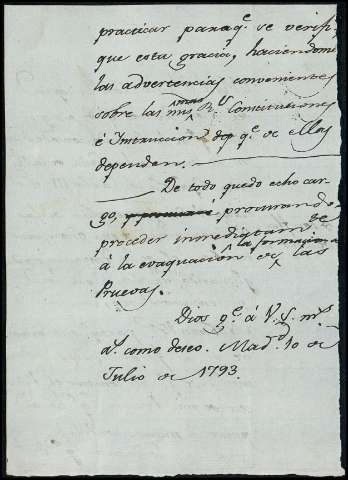 practicar para q.e se verifi-
que esta gracia, haciendome
las advertencias convenientes
sobre las mis mas R.s Constituciones
é Instruccion q.e de ellas
dependen.
De todo quedo echo car-
go, y procuraré procurando
proceder inmediatam.te
á la evaquacion de la formacion de las
Pruevas.
Dios g.e á V. S. m.s
a.s como deseo. Mad.d 10 de
Julio de 1793.